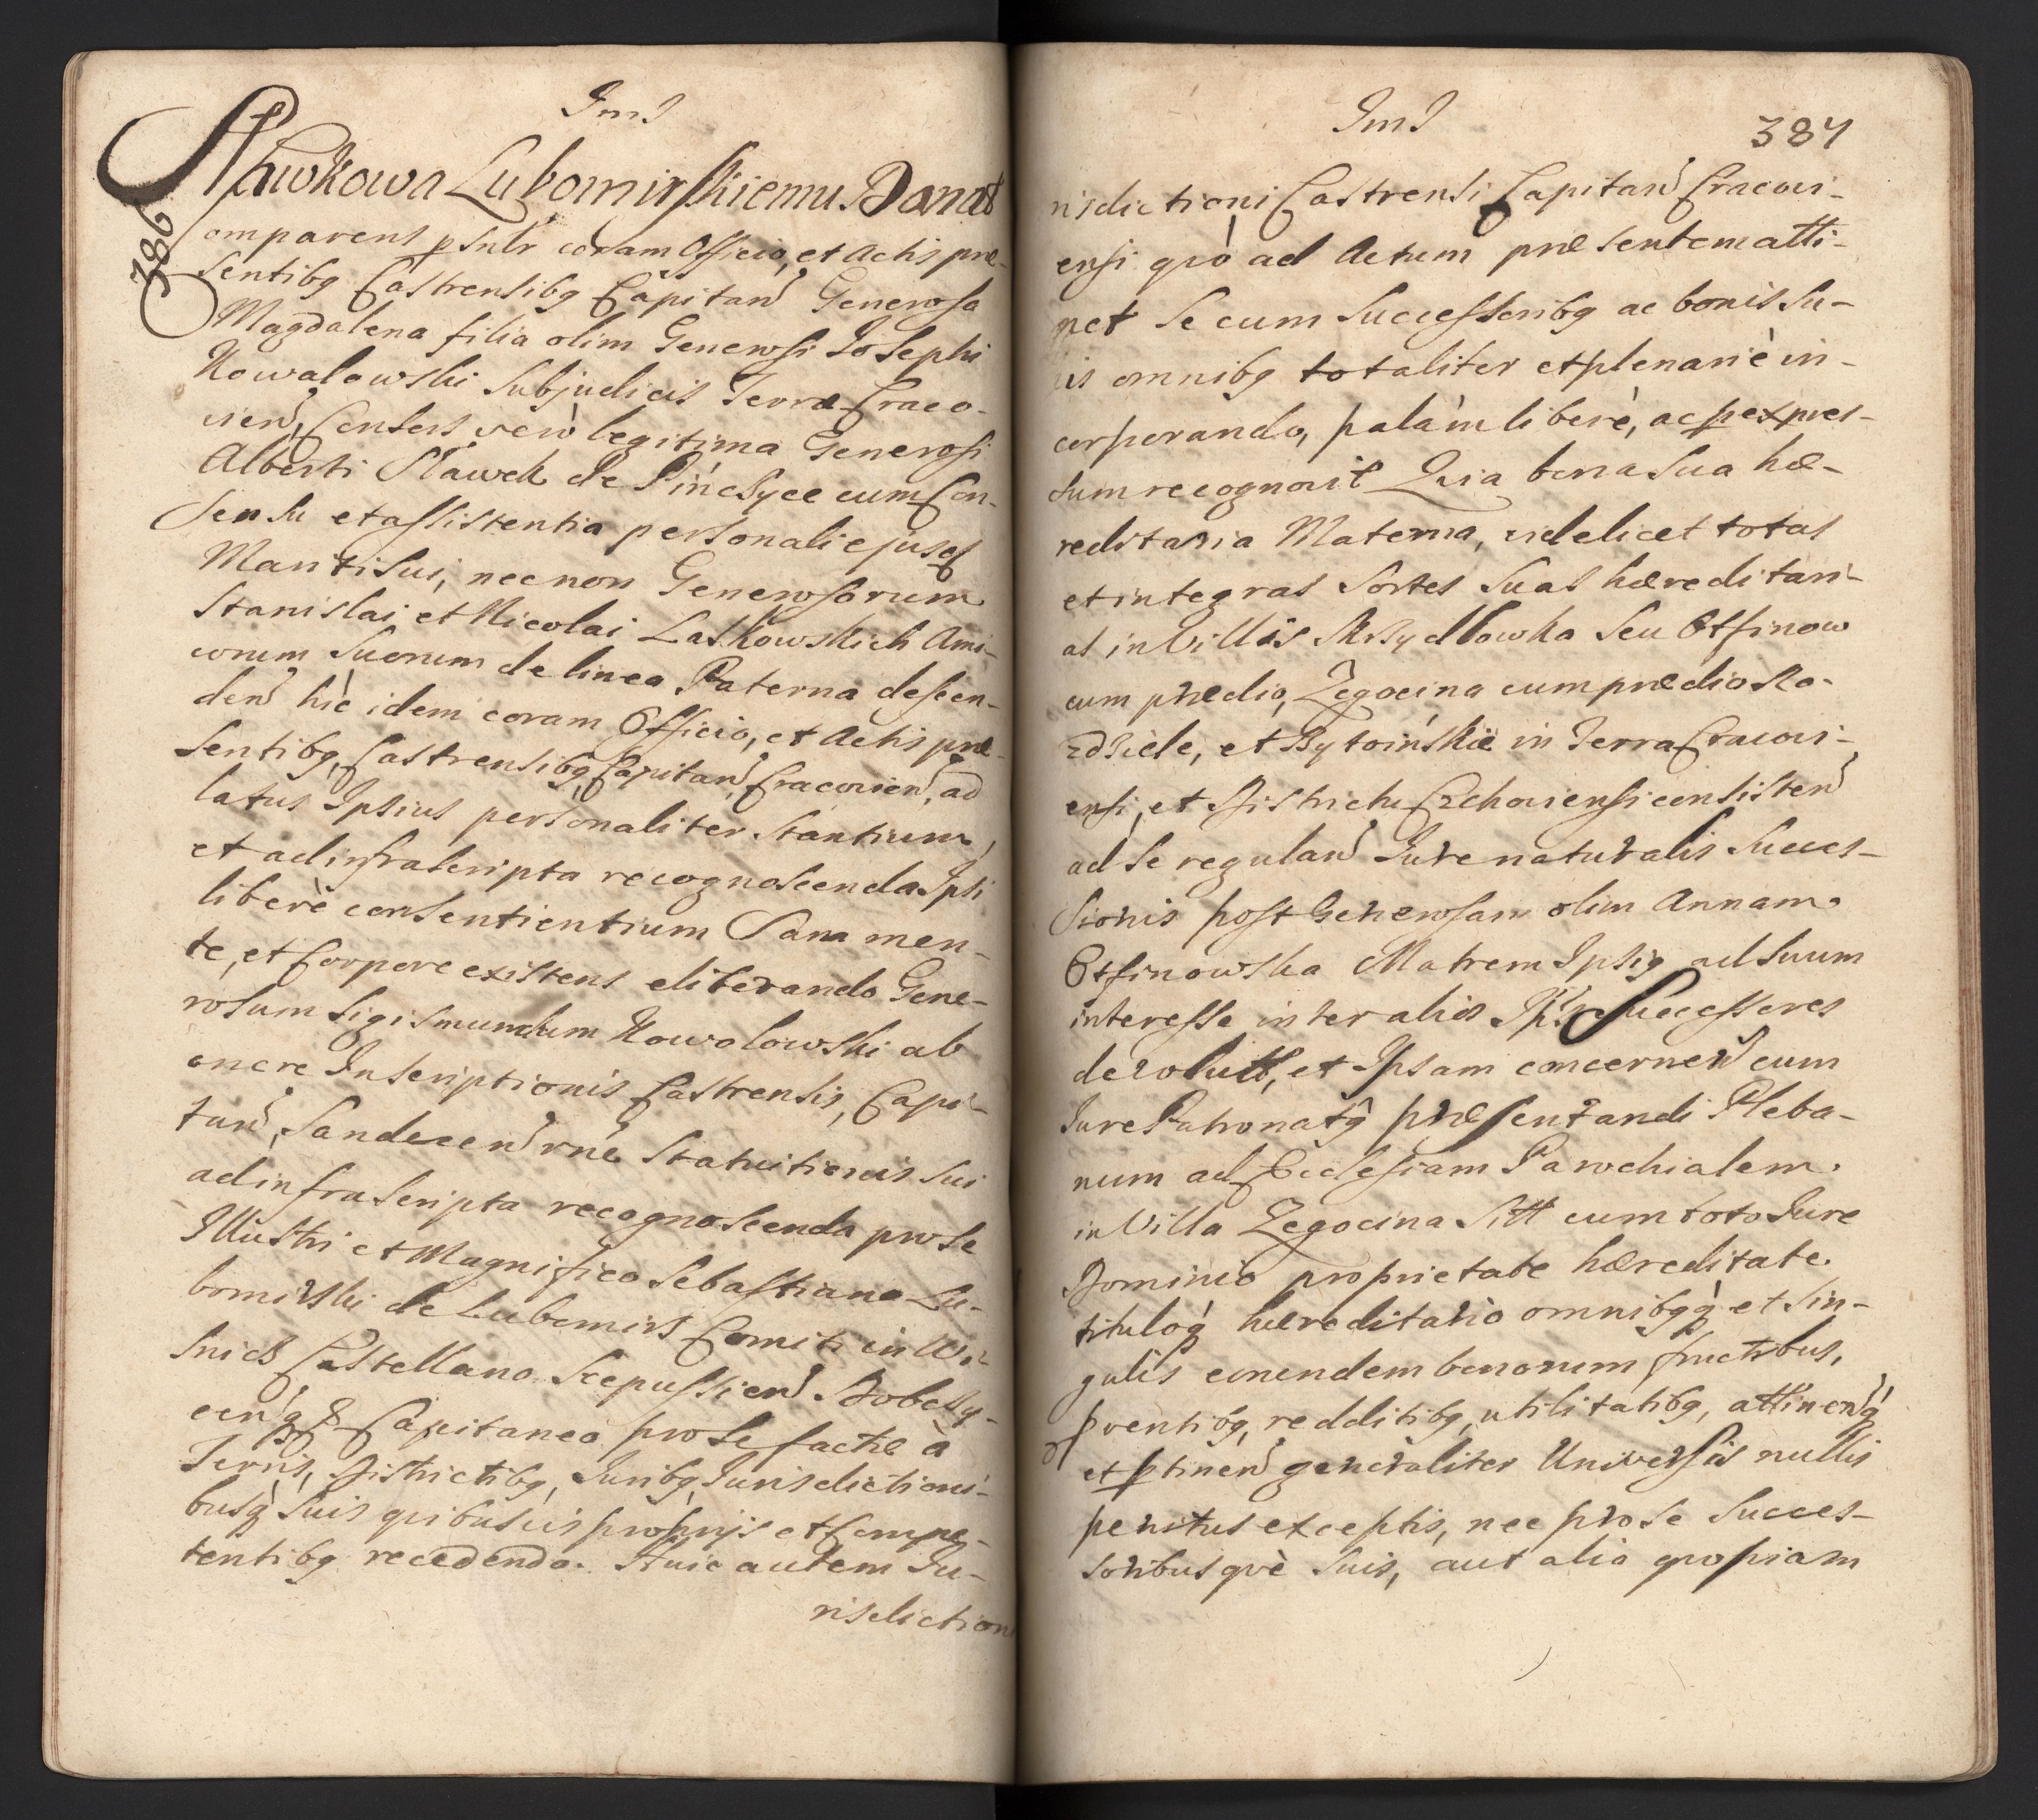 ImJ
Sławkowa Lubomirskiemu Donat
386
Comparens psnlr coram Officio, et Actis præ-
sentibq Castrensibq Capitan Generosa
Magdalena filia olim Generosi Josephi
Kowalowski Subjudicis Terræ Craco-
vien, Consors verò legitima Generosi
Alberti Sławek de Pińczyce cum Con-
sensu et assistentia personali ejusd
Mariti sui, necnon Generosorum
Stanislai, et Nicolai Laskowskich Ami-
corum suorum de linea Paterna descen-
den hic idem coram Officio, et Actis præ-
sentibq, Castrensibq, Capitan, Cracovien, ad
latus Ipsius personaliter stantium,
et ad infrascripta recognoscenda Ipsi
liberè consentientium Sana men-
te, et Corpore existens eliberando Gene-
rosum Sigismundum Kowalowski ab
onere Inscriptionis Castrensis, Capi-
tan, Sandecen rne Statuitionis sui
ad infrascripta recognoscenda pro se
Illustri et Magnifico Sebastiano Lu-
bomirski de Lubomirz Comiti in Wi-
snicz Castellano Scepussien Dobczy-
cenq & Capitaneo pro se factæ à
Terris, Districtibq, Juribq, Jurisdictioni-
busq suis quibusvis proprijs et Compe-
tentibq recedendo. Huic autem Ju-
risdictioni
ImJ
387
risdictioni Castrensi Capitan Cracovi-
ensi quò ad Actum præsentem atti-
net se cum Successoribq ac bonis su-
is omnibq totaliter et plenariè in-
corporando, palàm liberè, ac p expres-
sum recognovit Quia bona sua hæ-
reditaria Materna, videlicet totas
et integras Sortes suas hæreditari-
as in Villis Skrzydlowka seu Otfinow
cum prædio, Zegocina cum prædio Ro-
zdziele, et Bytoińskie in Terra Cracovi-
ensi, et Districtu Czchoviensi consisten
ad se regulan Jure naturalis Succes-
sionis post Generosam olim Annam
Otfinowska Matrem Ipsiq ad suum
interesse inter alios Ipsiq Successores
devolutt, et Ipsam concernen cum
Jure Patronatq præsentandi Pleba-
num ad Ecclesiam Parochialem
in Villa Zegocina Sitt cum toto Jure
Dominio proprietate hæreditate
tituloq hæreditario omnibqq et sin-
gulis eorundem bonorum fructibus,
pventibq, redditibq, utilitatibq, attinenq
et ptinen generaliter Universis nullis
penitus exceptis, nec pro se Succes-
soribusquè suis, aut alia quopiam